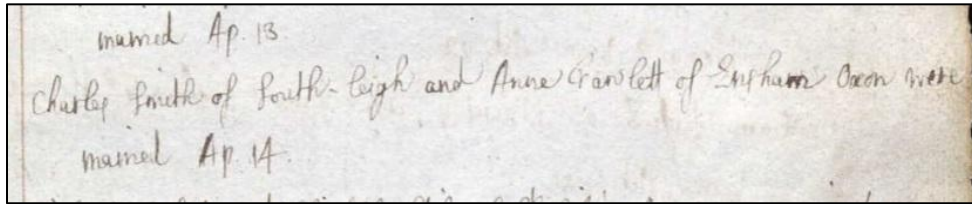 married Ap. 13.
Charles Smith of South-leigh and Anne Crawlett of Ensham Oxon were
married Ap. 14.